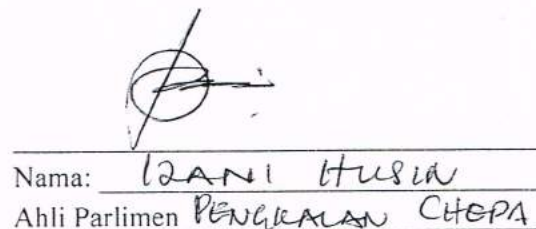 Nama: IZANI HUSIN
Ahli Parlimen PENGKALAN CHEPA